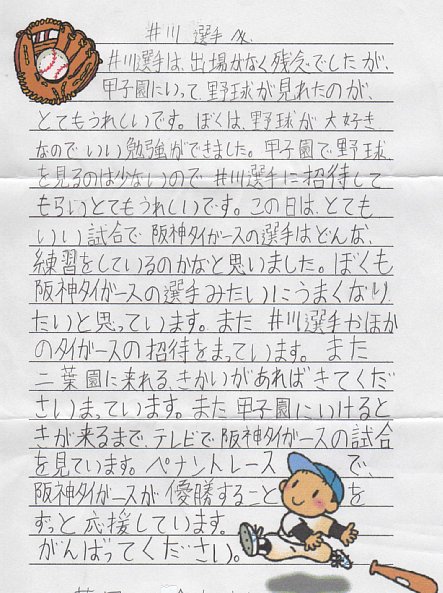 井川 選手 へ
井川選手は、出場がなく残念でしたが、
甲子園にいって、野球が見れたのが、
とてもうれしいです。ぼくは、野球が大好き
なのでいい勉強ができました。甲子園で野球
を見るのは少ないので井川選手に招待して
もらいとてもうれしいです。この日は、とても
いい試合で阪神タイガースの選手はどんな、
練習をしているのかなと思いました。ぼくも
阪神タイガースの選手みたいにうまくなり
たいと思っています。また井川選手やほか
のタイガースの招待をまっています。また
二葉園に来れる、きかいがあればきてくだ
さいまっています。また甲子園にいけると
きが来るまで、テレビで、阪神タイガースの試合
を見ています。ペナントレースで、
阪神タイガースが優勝することを
ずっと応援しています。
がんばってください。